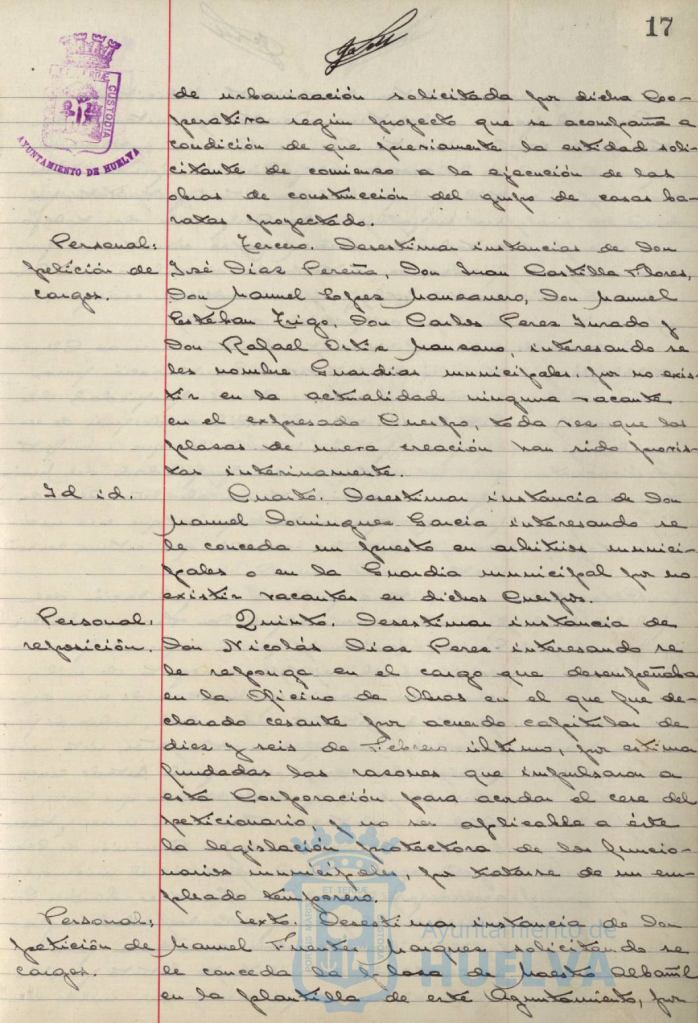 17
CUSTODIA
AYUNTAMIENTO DE HUELVA
de urbanización solicitada por dicha Coo-
perativa según proyecto que se acompaña a
condición de que previamente la entidad soli-
citante de comienzo a la ejecución de las
obras de construcción del grupo de casas ba-
ratas proyectado.
Personal:
petición de
cargos.
Tercero. Desestimar instancias de Don
José Díaz Pereña, Don Juan Castilla Flores,
Don Manuel López Manzanero, Don Manuel
Esteban Trigo, Don Carlos Perez Jurado y
Don Rafael Ortiz Manzano, interesando se
les nombre Guardias municipales, por no exis-
tir en la actualidad ninguna vacante
en el expresado Cuerpo, toda vez que las
plazas de nueva creación han sido provis-
tas interinamente.
Id id.
Cuarto. Desestimar instancia de Don
Manuel Dominguez Garcia interesando se
le conceda un puesto en arbitrios munici-
pales o en la Guardia municipal por no
existir vacantes en dichos Cuerpos.
Personal:
reposición.
Quinto. Desestimar instancia de
Don Nicolás Diaz Perez interesando se
le reponga en el cargo que desempeñaba
en la Oficina de Obras en el que fue de-
clarado cesante por acuerdo capitular de
diez y seis de Febrero último, por estimar
fundadas las razones que impulsaron a
esta Corporación para acordar el cese del
peticionario, y no ser aplicable a éste
la legislación protectora de los funcio-
narios municipales, por tratarse de un em-
pleado temporero.
Personal:
petición de
cargos.
Sexto. Desestimar instancia de Don
Manuel Fuentes Marquez solicitando se
le conceda la plaza de Maestro Albañil
en la plantilla de este Ayuntamiento, por
Ayuntamiento de
HUELVA